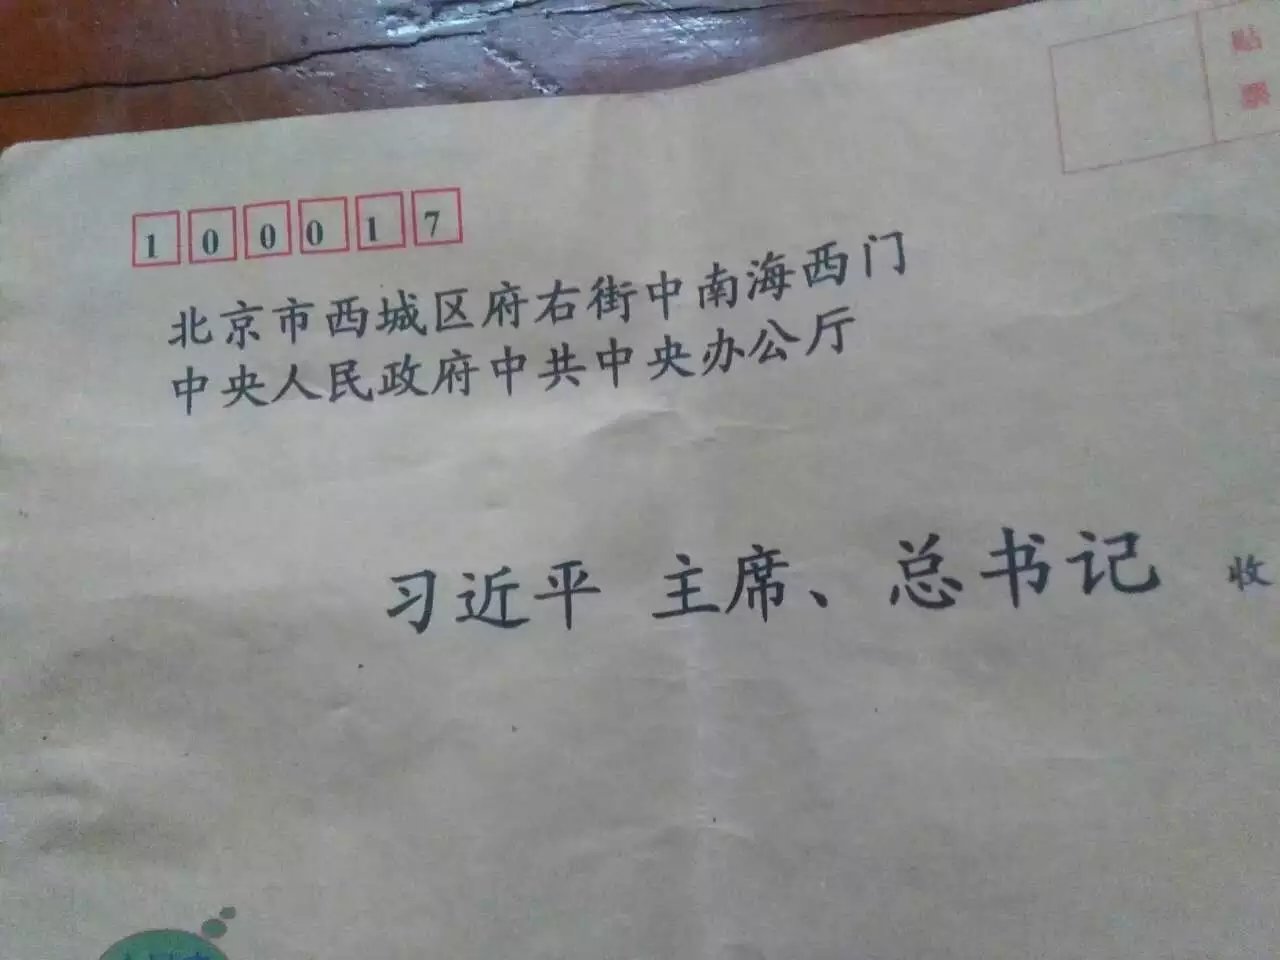 贴
票
100017
北京市西城区府右街中南海西门
中央人民政府中共中央办公厅
习近平 主席、总书记 收